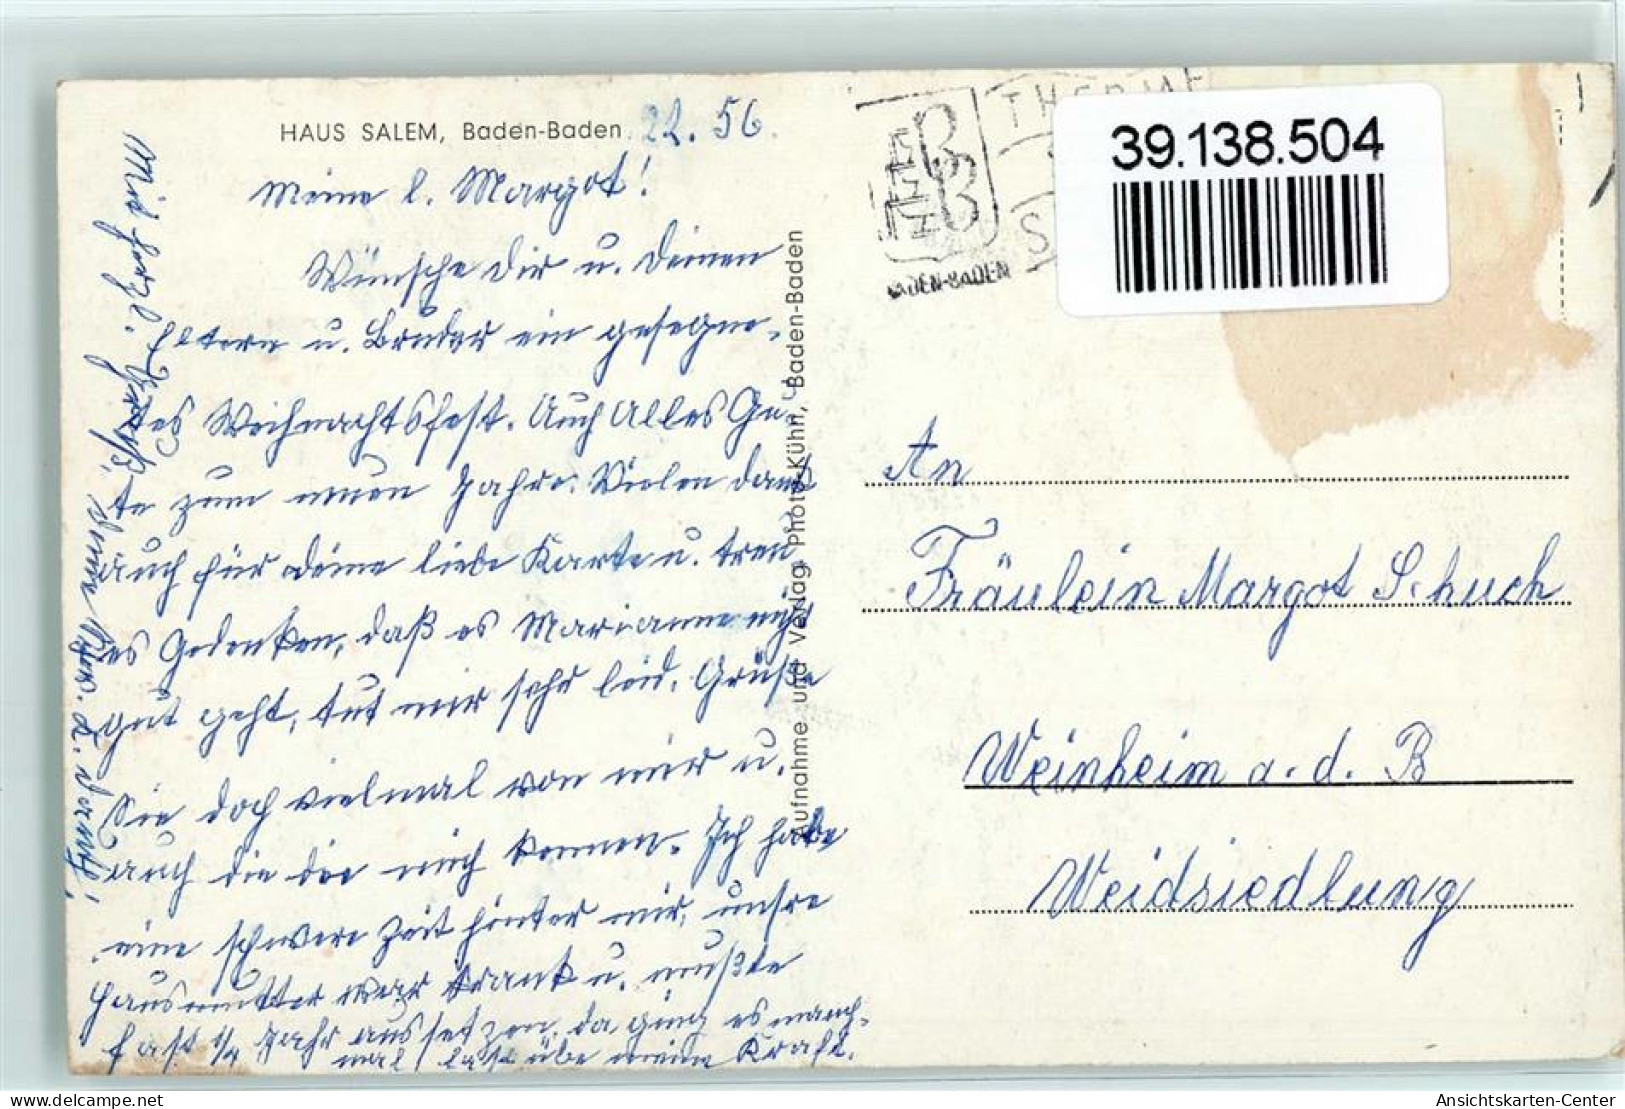 HAUS SALEM, Baden-Baden
22. 56
Meine l. Margot!
Wünsche Dir u. Deinen
Eltern u. Bruder ein gesegne-
tes Weihnachtsfest. Auch Alles Gu-
te zum neuen Jahre. Vielen Dank
auch für Deine liebe Karte u. treu
es Gedenken, daß es Marianne nicht
gut geht, tut mir sehr leid. Grüße
Sie doch vielmal von mir u.
auch die die mich kennen. Ich habe
eine schwere Zeit hinter mir, unsre
Hausmutter war krank u. mußte
fast 1/4 Jahr aussetzen, da ging es manch-
mal fast übe meine Kraft.
Mit herzl. Gruß! Deine
Aufnahme und Verlag Photo-Kühn, Baden-Baden
THERME
BB
S
BADEN-BADEN
39.138.504
An
Fräulein Margot Schuch
Weinheim a. d. B
Weidsiedlung
www.delcampe.net
Ansichtskarten-Center